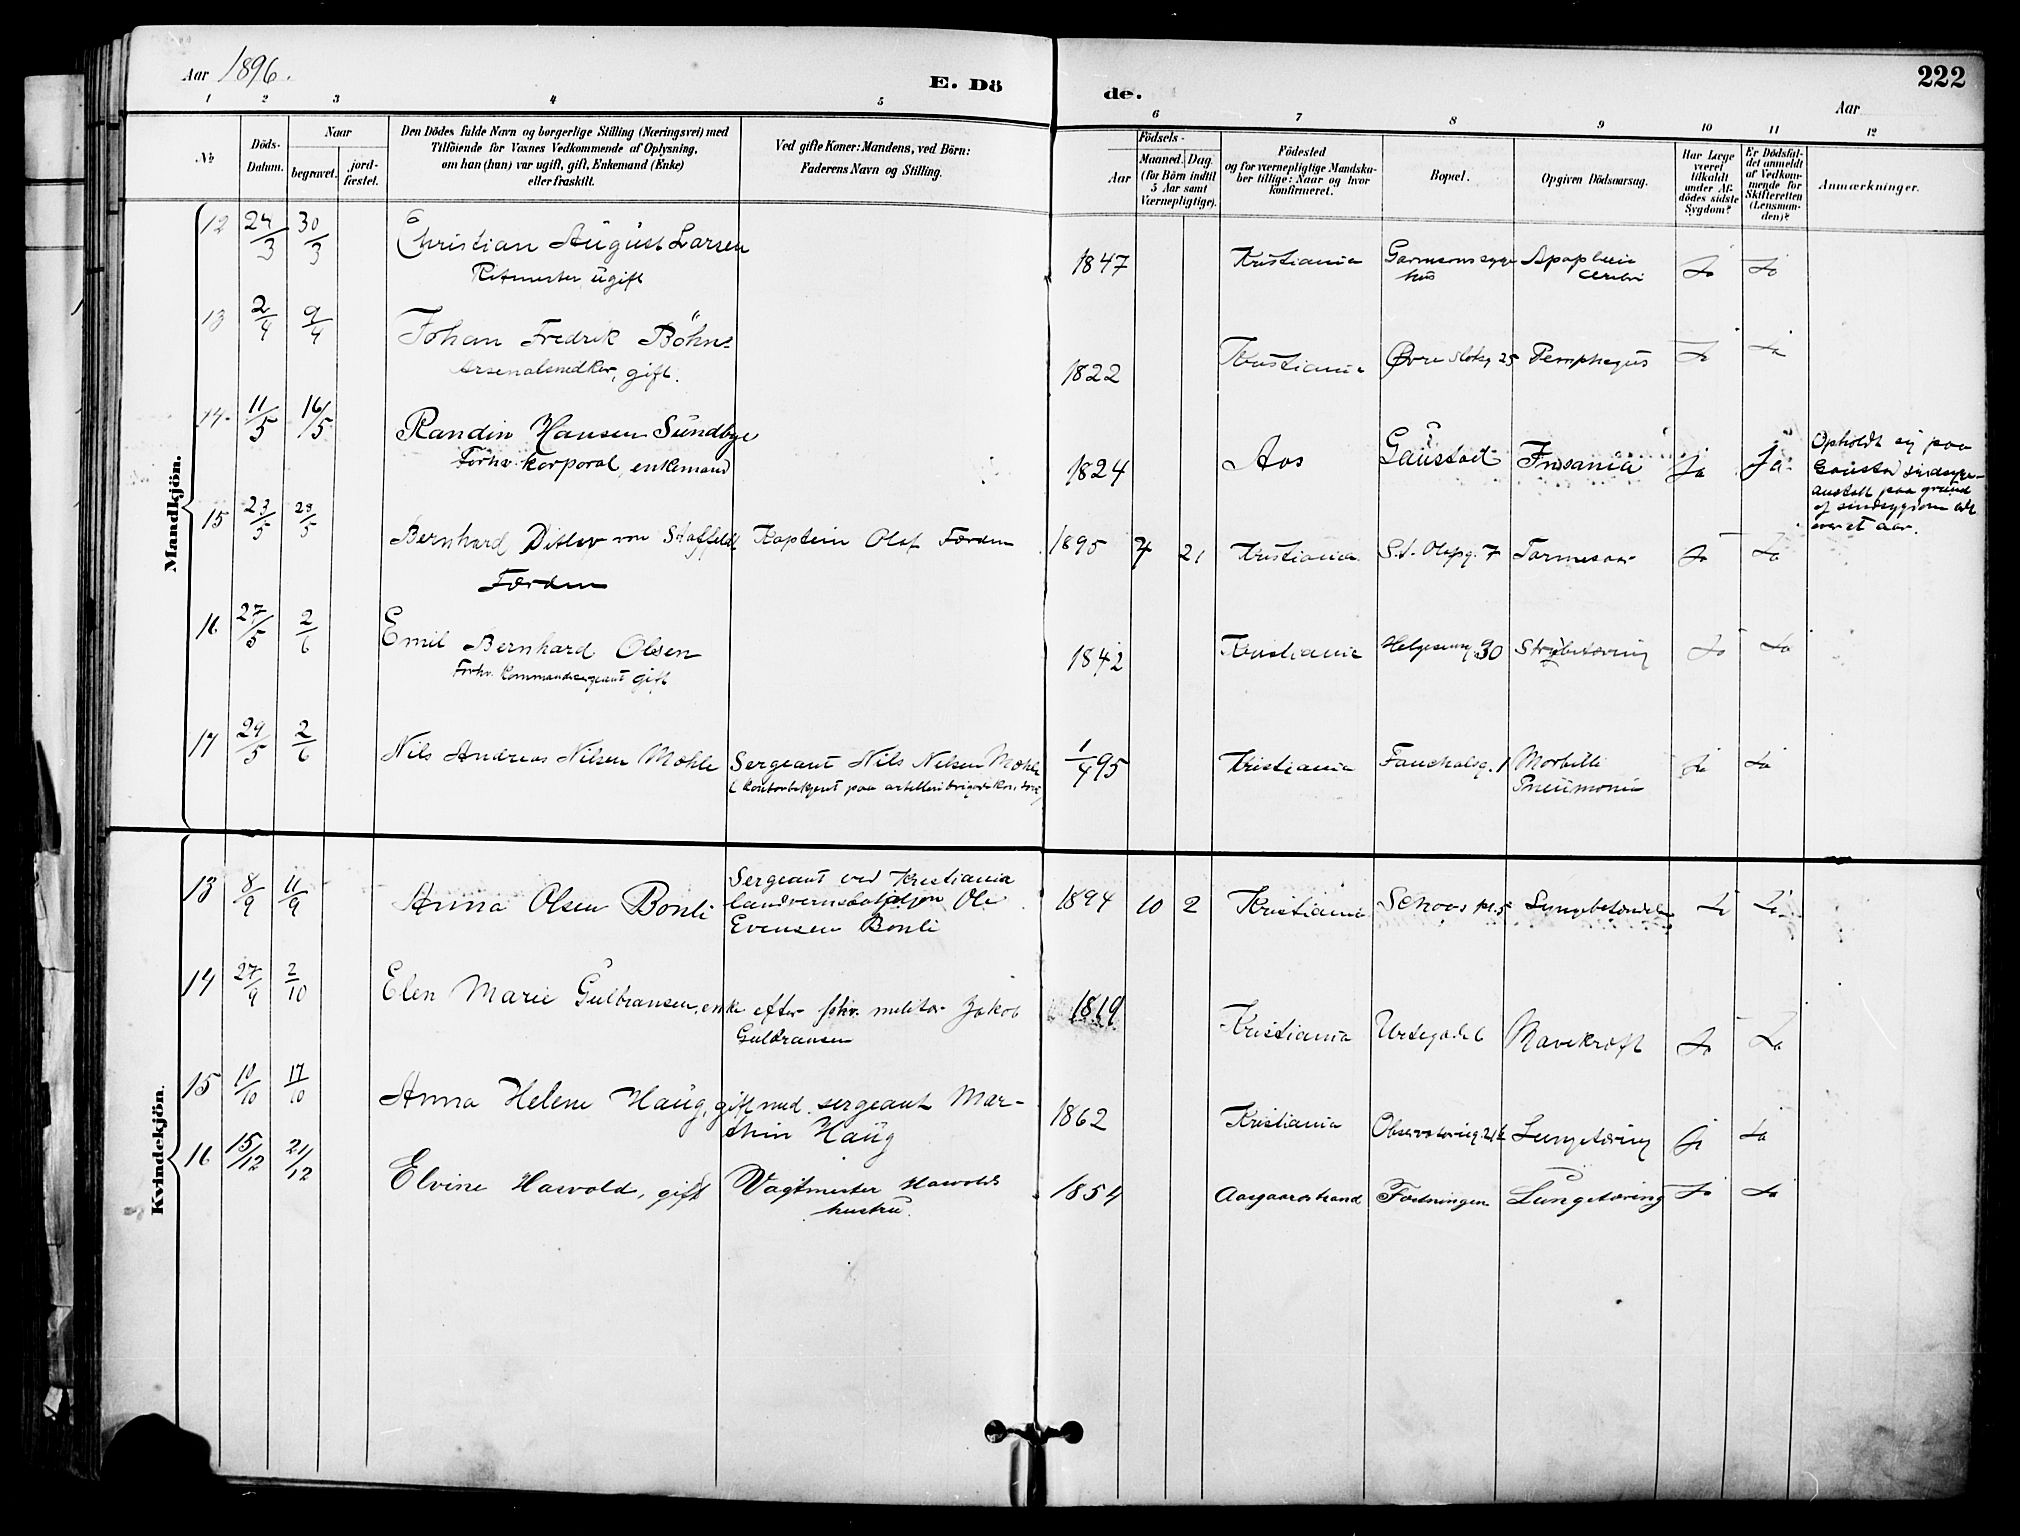 Aar 1896.
E. Dö de.
222
Aar
1 2 3 4 5 6 7 8 9 10 11 12
№
Döds-Datum.
Naar
begravet.
jord-fæstet.
Den Dödes fulde Navn og borgerlige Stilling (Næringsvei) med
Tilföiende for Voxnes Vedkommende af Oplysning,
om han (hun) var ugift, gift, Enkemand (Enke)
eller fraskilt.
Ved gifte Koner: Mandens, ved Börn:
Faderens Navn og Stilling.
Födsels-
Aar
Maaned. Dag.
(for Börn indtil
5 Aar samt
Værnepligtige).
Födested
og for værnepligtige Mandska-
ber tillige: Naar og hvor
konfirmeret.
Bopæl.
Opgiven Dödsaarsag.
Har Læge
været
tilkaldt
under Af-
dödes sidste
Sygdom?
Er Dödsfal-
det anmeldt
af Vedkom-
mende for
Skifteretten
(Lensman-
den)?
Anmærkninger.
Mandkjön.
12 24/3 30/3 Christian August Larsen 1847 Kristiania Apoplexia Ja Ja
Ritmester, ugift hus cerebri
13 2/4 9/4 Johan Fredrik Böhn 1822 Kristiania Øvre Slotsg 25 Pemphegus Ja Ja
Arsenalsmedker, gift.
14 11/5 16/5 Randin Hansen Sundbye 1824 Aas Gaustad Insania Ja Ja
Forhv. korporal, enkemand
Opholdt sig paa
Gausta sindsyge-
anstalt paa grund
af sindsygdom
over et aar.
15 23/5 28/5 Bernhard Ditlev von Staffeldt Kaptein Olaf Færden 1895 4 21 Kristiania St. Olafsg. 7 Ja Ja
Færden
16 27/5 2/6 Emil Bernhard Olsen 1842 Kristiania 30 Ja Ja
Forhv. Kommandersergeant gift
17 29/5 2/6 Nils Andreas Nilsen Mæhle Sergeant Nils Nilsen Mæhle 1/4 95 Kristiania 1 Morbilli Ja Ja
Pneumonia
Kvindekjön.
13 8/9 11/9 Anna Olsen Bonli Sergeant ved Kristiania 1894 10 2 Kristiania Schous pl. 5 Lungebetændelse Ja Ja
landvernsbataljon Ole
Evensen Bonli
14 27/9 2/10 Elen Marie Gulbransen, enke efter fhv. militær Jakob 1819 Kristiania Mavekræft Ja Ja
Gulbransen
15 10/10 17/10 Anna Helene Haug, gift med sergeant Mar- 1862 Kristiania Lungetæring Ja Ja
thin Haug
16 15/12 21/12 Elvine Havold, gift Vagtmester Havolds 1854 Aasgaardstrand Fæstningen Lungetæring Ja Ja
hustru.